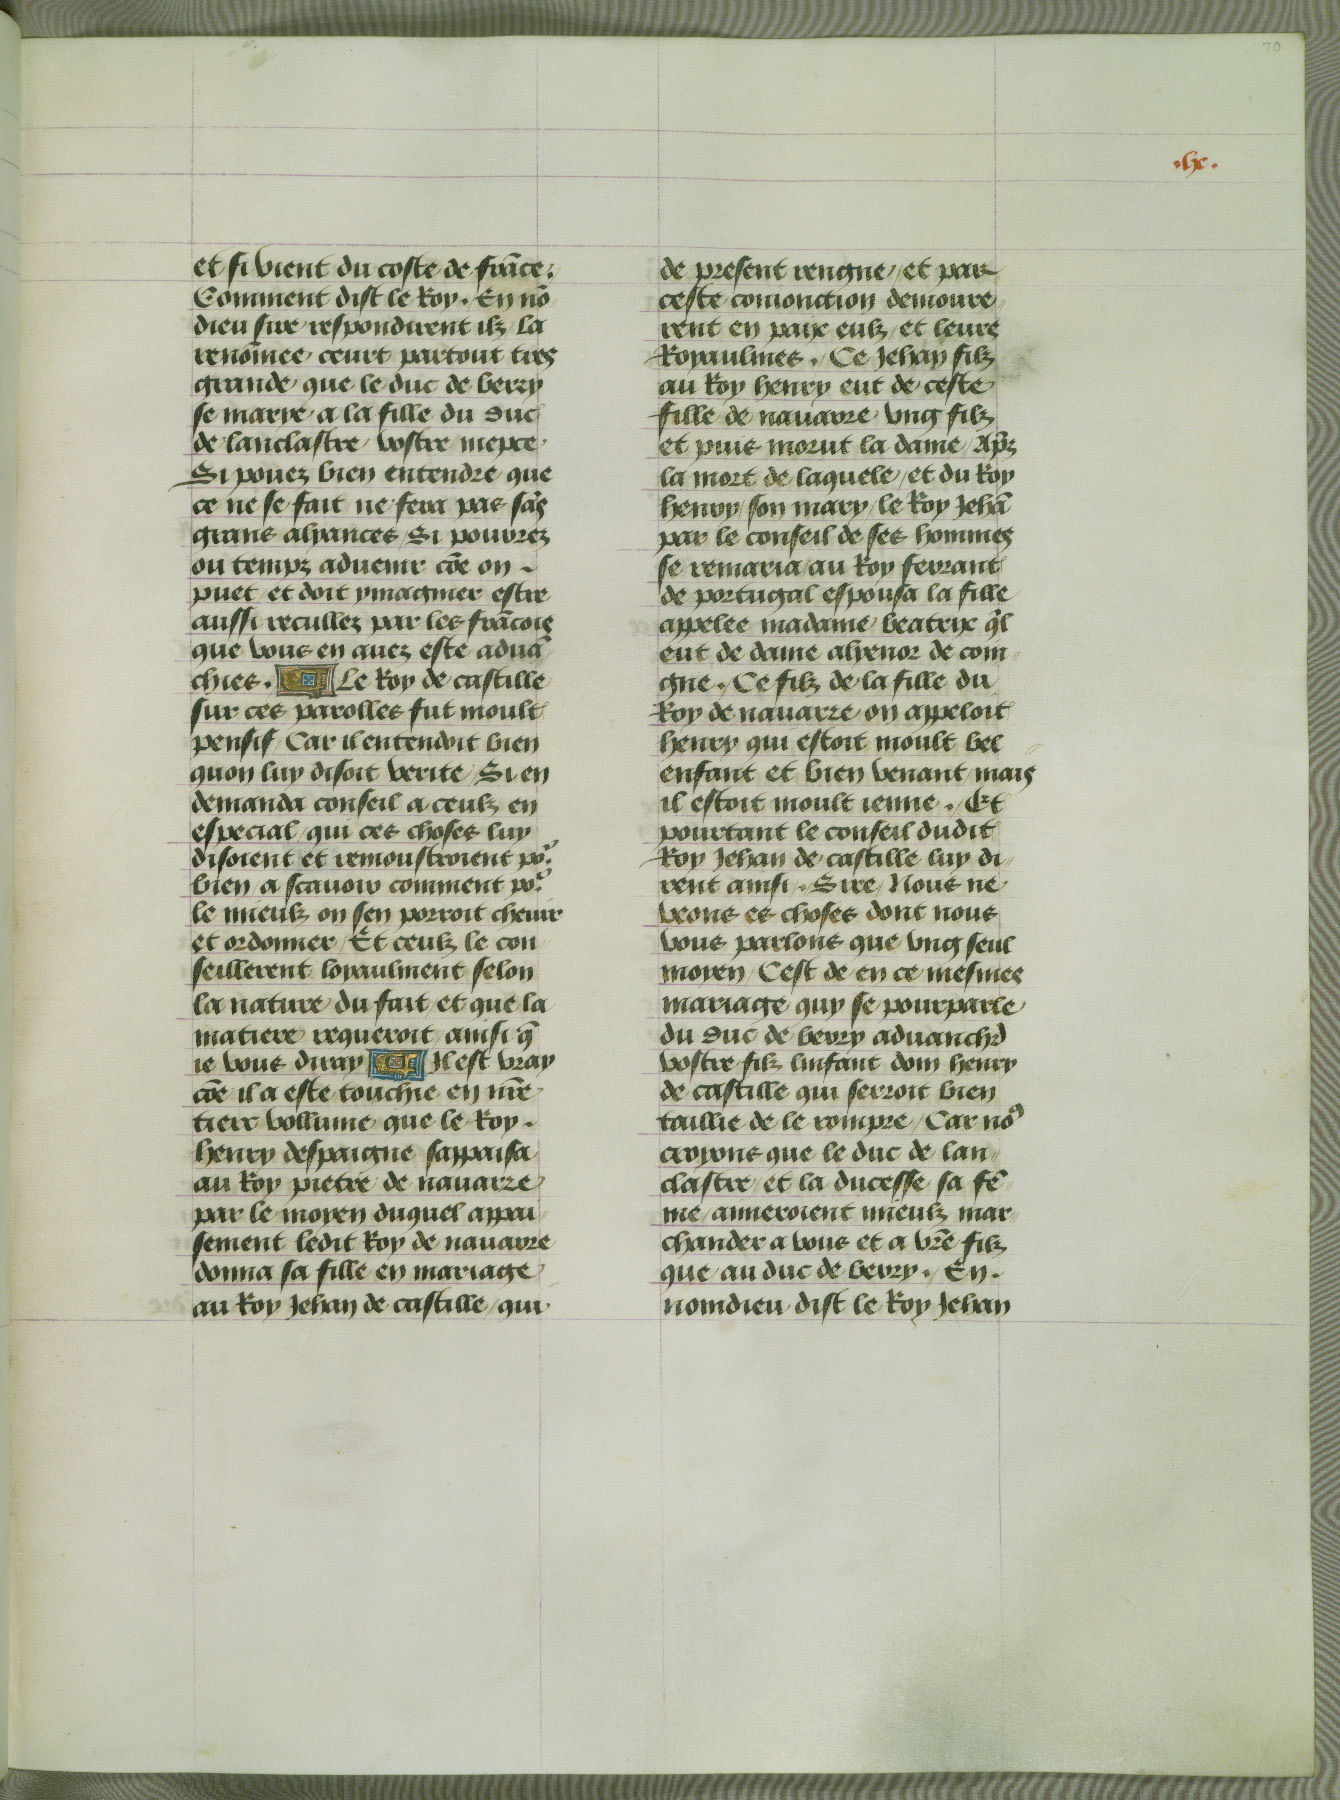 70
.lx.
et si vient du coste de frāce.
Comment dist le Roy. En nō
dieu sire respondirent ilz / la
renōmee ceurt partout tres
grande que le duc de berry
se marye a la fille du duc
de lanclastre vostre niepce
Si pouez bien entendre que
ce ne se fait ne fera pas sās
grans alyances / Si pourrez
ou tempz aduenir cōe on
puet et doit ymaginer estre
aussi recullez par les frācois
que vous en auez este aduā
chies. Le Roy de castille
sur ces parolles fut moult
pensif / Car il entendoit bien
quon luy disoit verite / Si en
demanda conseil a ceulz en
especial qui ces choses luy
disoient et remoustroient po.ͬ
bien a scauoir comment po.ͬ
le mieulz on sen porroit cheuir
et ordonner / Et ceulz le con
seillerent loyaulment selon
la nature du fait et que la
matiere requeroit ainsi q̄
ie vous diray Il est vray
cōe il a este touchie en nr̄e
tierc vollume que le Roy.
henry despaigne sappaisa
au Roy pietre de nauarre
par le moyen duquel appai
sement ledit Roy de nauarre
donna sa fille en mariage
au Roy Jehan de castille / qui
de present rengne / et par
ceste conionction demoure
rent en paye eulz et leurs
Royaulmes. / Ce Jehan filz
au Roy henry eut de ceste
fille de nauarre vng filz
et puis morut la dame / Ap̄z
la mort de laquele / et du Roy
henry / son mary / le Roy Jehā
par le conseil de ses hommes
se remaria / au Roy ferrant
de portugal espousa la fille
appelee madame beatrix q̄l
eut de dame alyenor de com
gne. / Ce filz de la fille du
Roy de nauarre on appeloit
henry qui estoit moult bel
enfant et bien venant / mais
il estoit moult ienne. / Et
pourtant le conseil dudit
Roy Jehan de castille luy di
rent ainsi. Sire / Nous ne
veons es choses dont nous
vous parlons que vng seul
moyen / Cest de en ce mesmes
mariage quy se pourparle
du duc de berry aduanchr̄
vostre filz linfant dom henry
de castille qui serroit bien
taillie de le rompre / Car no9
creons que le duc de lan
clastre et la ducesse sa fē
me / aimeroient mieulz mar
chander a vous et a vr̄e filz
que au duc de berry. / En.
nomdieu dist le Roy Jehan